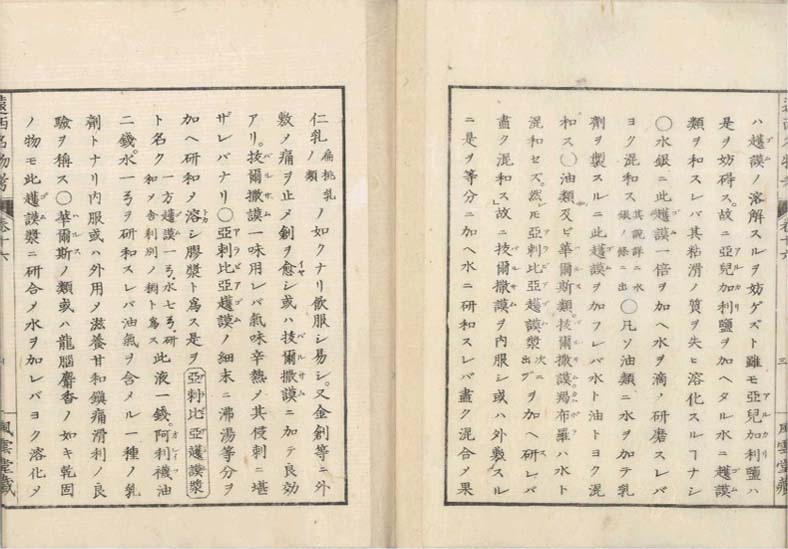 ハ䕶謨ノ溶解スルヲ妨ゲズト雖モ亞兒加利鹽ハ
是ヲ妨碍ス。故ニ亞兒加利鹽ヲ加ヘタル水ニ䕶謨
類ヲ和スレバ其粘滑ノ質ヲ失ヒ溶化スルヿナシ
○水銀ニ此䕶謨一倍ヲ加ヘ水ヲ滴〆研磨スレバ
ヨク混和ス 其説詳ニ水銀ノ條ニ出 ○凡ソ油類ニ水ヲ加テ乳
劑ヲ製スルニ此䕶謨ヲ加フレバ水ト油トヨク混
和ス○油類及ビ華爾斯類。技爾撒謨羯布羅ハ水ト
混和セズ。然𪜈亞剌比亞䕶謨漿 次ニ出ヅ ヲ加ヘ研レバ
盡ク混和ス」故ニ技爾撒謨ヲ内服シ或ハ外敷スル
ニ是ヲ等分ニ加ヘ水ニ研和スレバ盡ク混合〆果
仁乳 扁桃乳ノ類 ノ如クナリ飲服シ易シ。又金創等ニ外
敷〆痛ヲ止メ創ヲ愈シ或ハ技爾撒謨ニ加テ良効
アリ。技爾撒謨一味用レバ氣味辛熱〆其侵刺ニ堪
ザレバナリ○亞剌比亞䕶謨ノ細末ニ沸湯等分ヲ
加ヘ研和〆溶シ膠漿ト爲ス是ヲ亞剌比亞䕶謨漿
ト名ク 一方䕶謨一弓、水七弓、研和〆舎利別ノ稠ト爲ス 此液一錢。阿利襪油
二錢。水一弓ヲ研和スレバ油氣ヲ含メル一種ノ乳
劑トナリ内服或ハ外用〆滋養甘和鎮痛滑利ノ良
驗ヲ稱ス○華爾斯ノ類或ハ龍腦麝香ノ如キ乾固
ノ物モ此䕶謨漿ニ研合〆水ヲ加レバヨク溶化〆
風雲堂藏